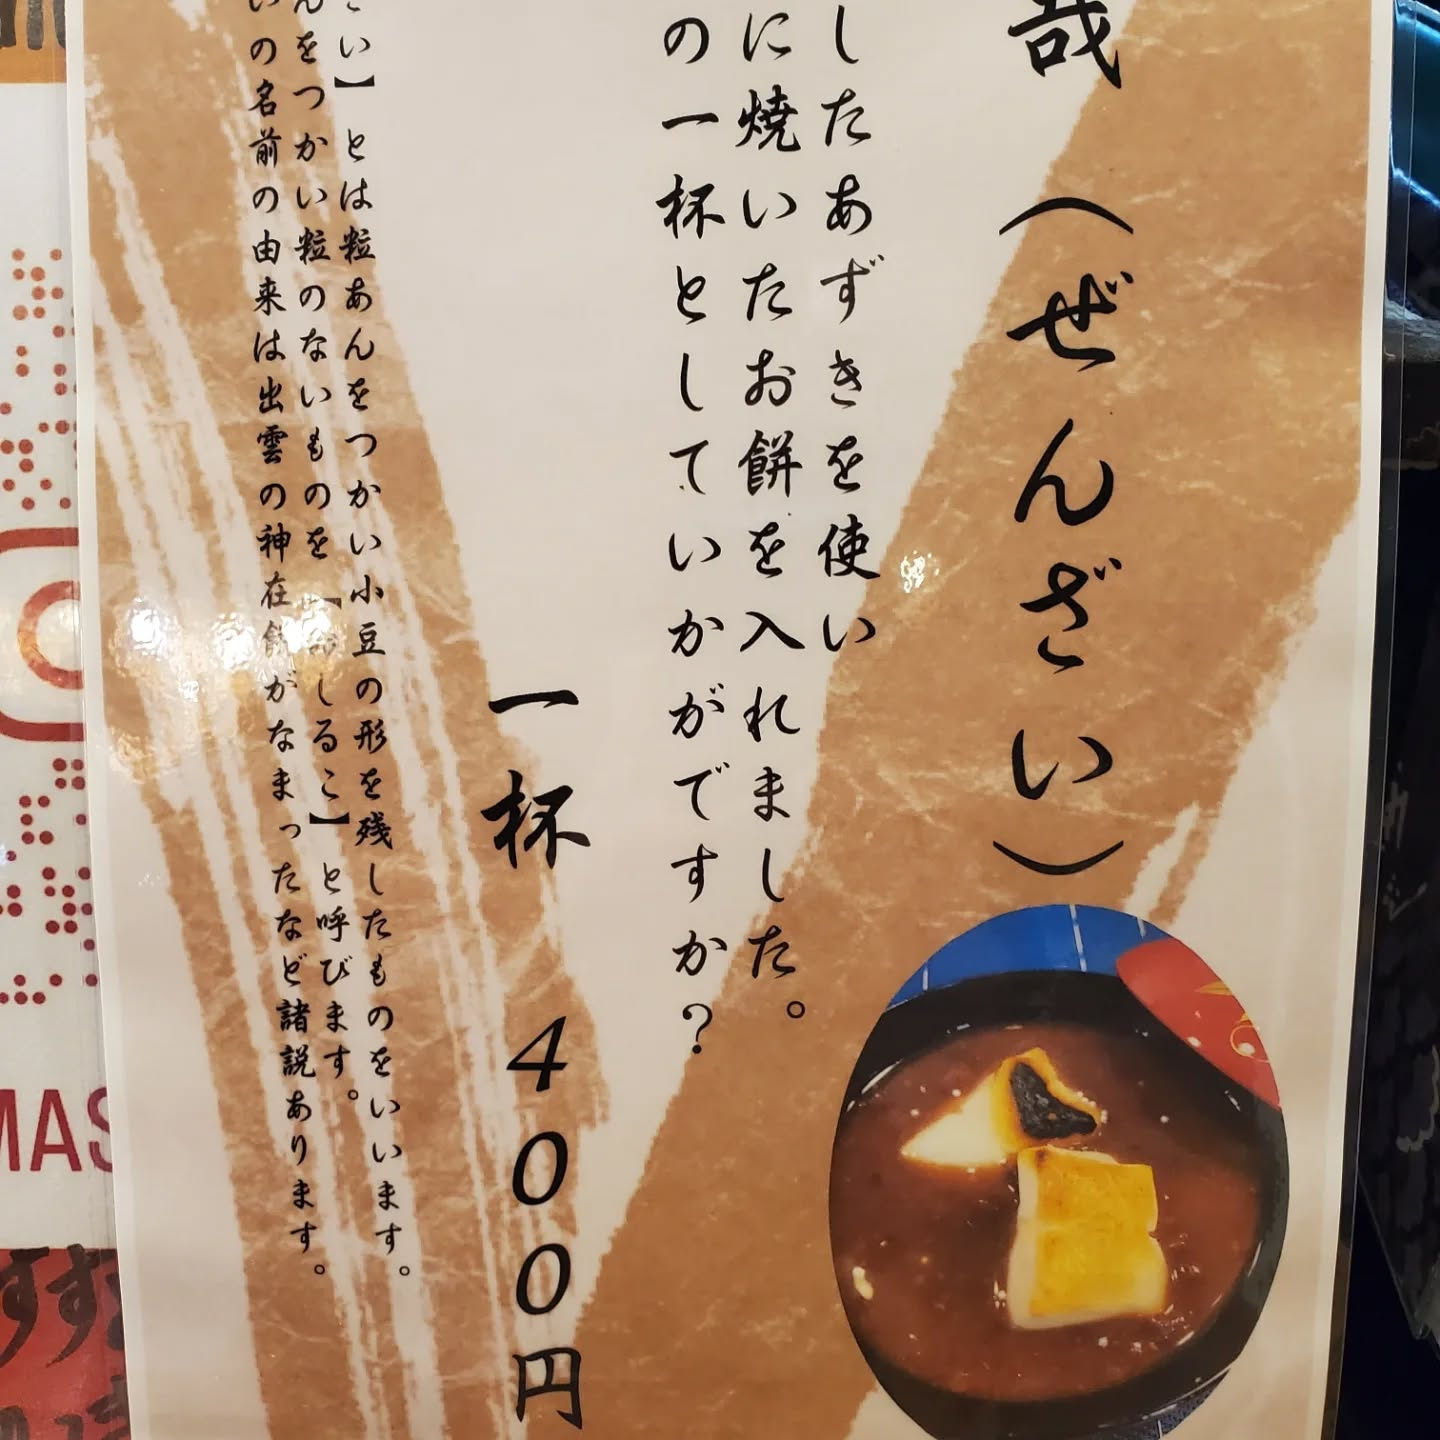 哉（ぜんざい）
したあずきを使い
に焼いたお餅を入れました。
の一杯としていかがですか？
一杯　４００円
い】とは粒あんをつかい小豆の形を残したものをいいます。
んをつかい粒のないものを【おしるこ】と呼びます。
いの名前の由来は出雲の神在餅がなまったなど諸説あります。
MAS